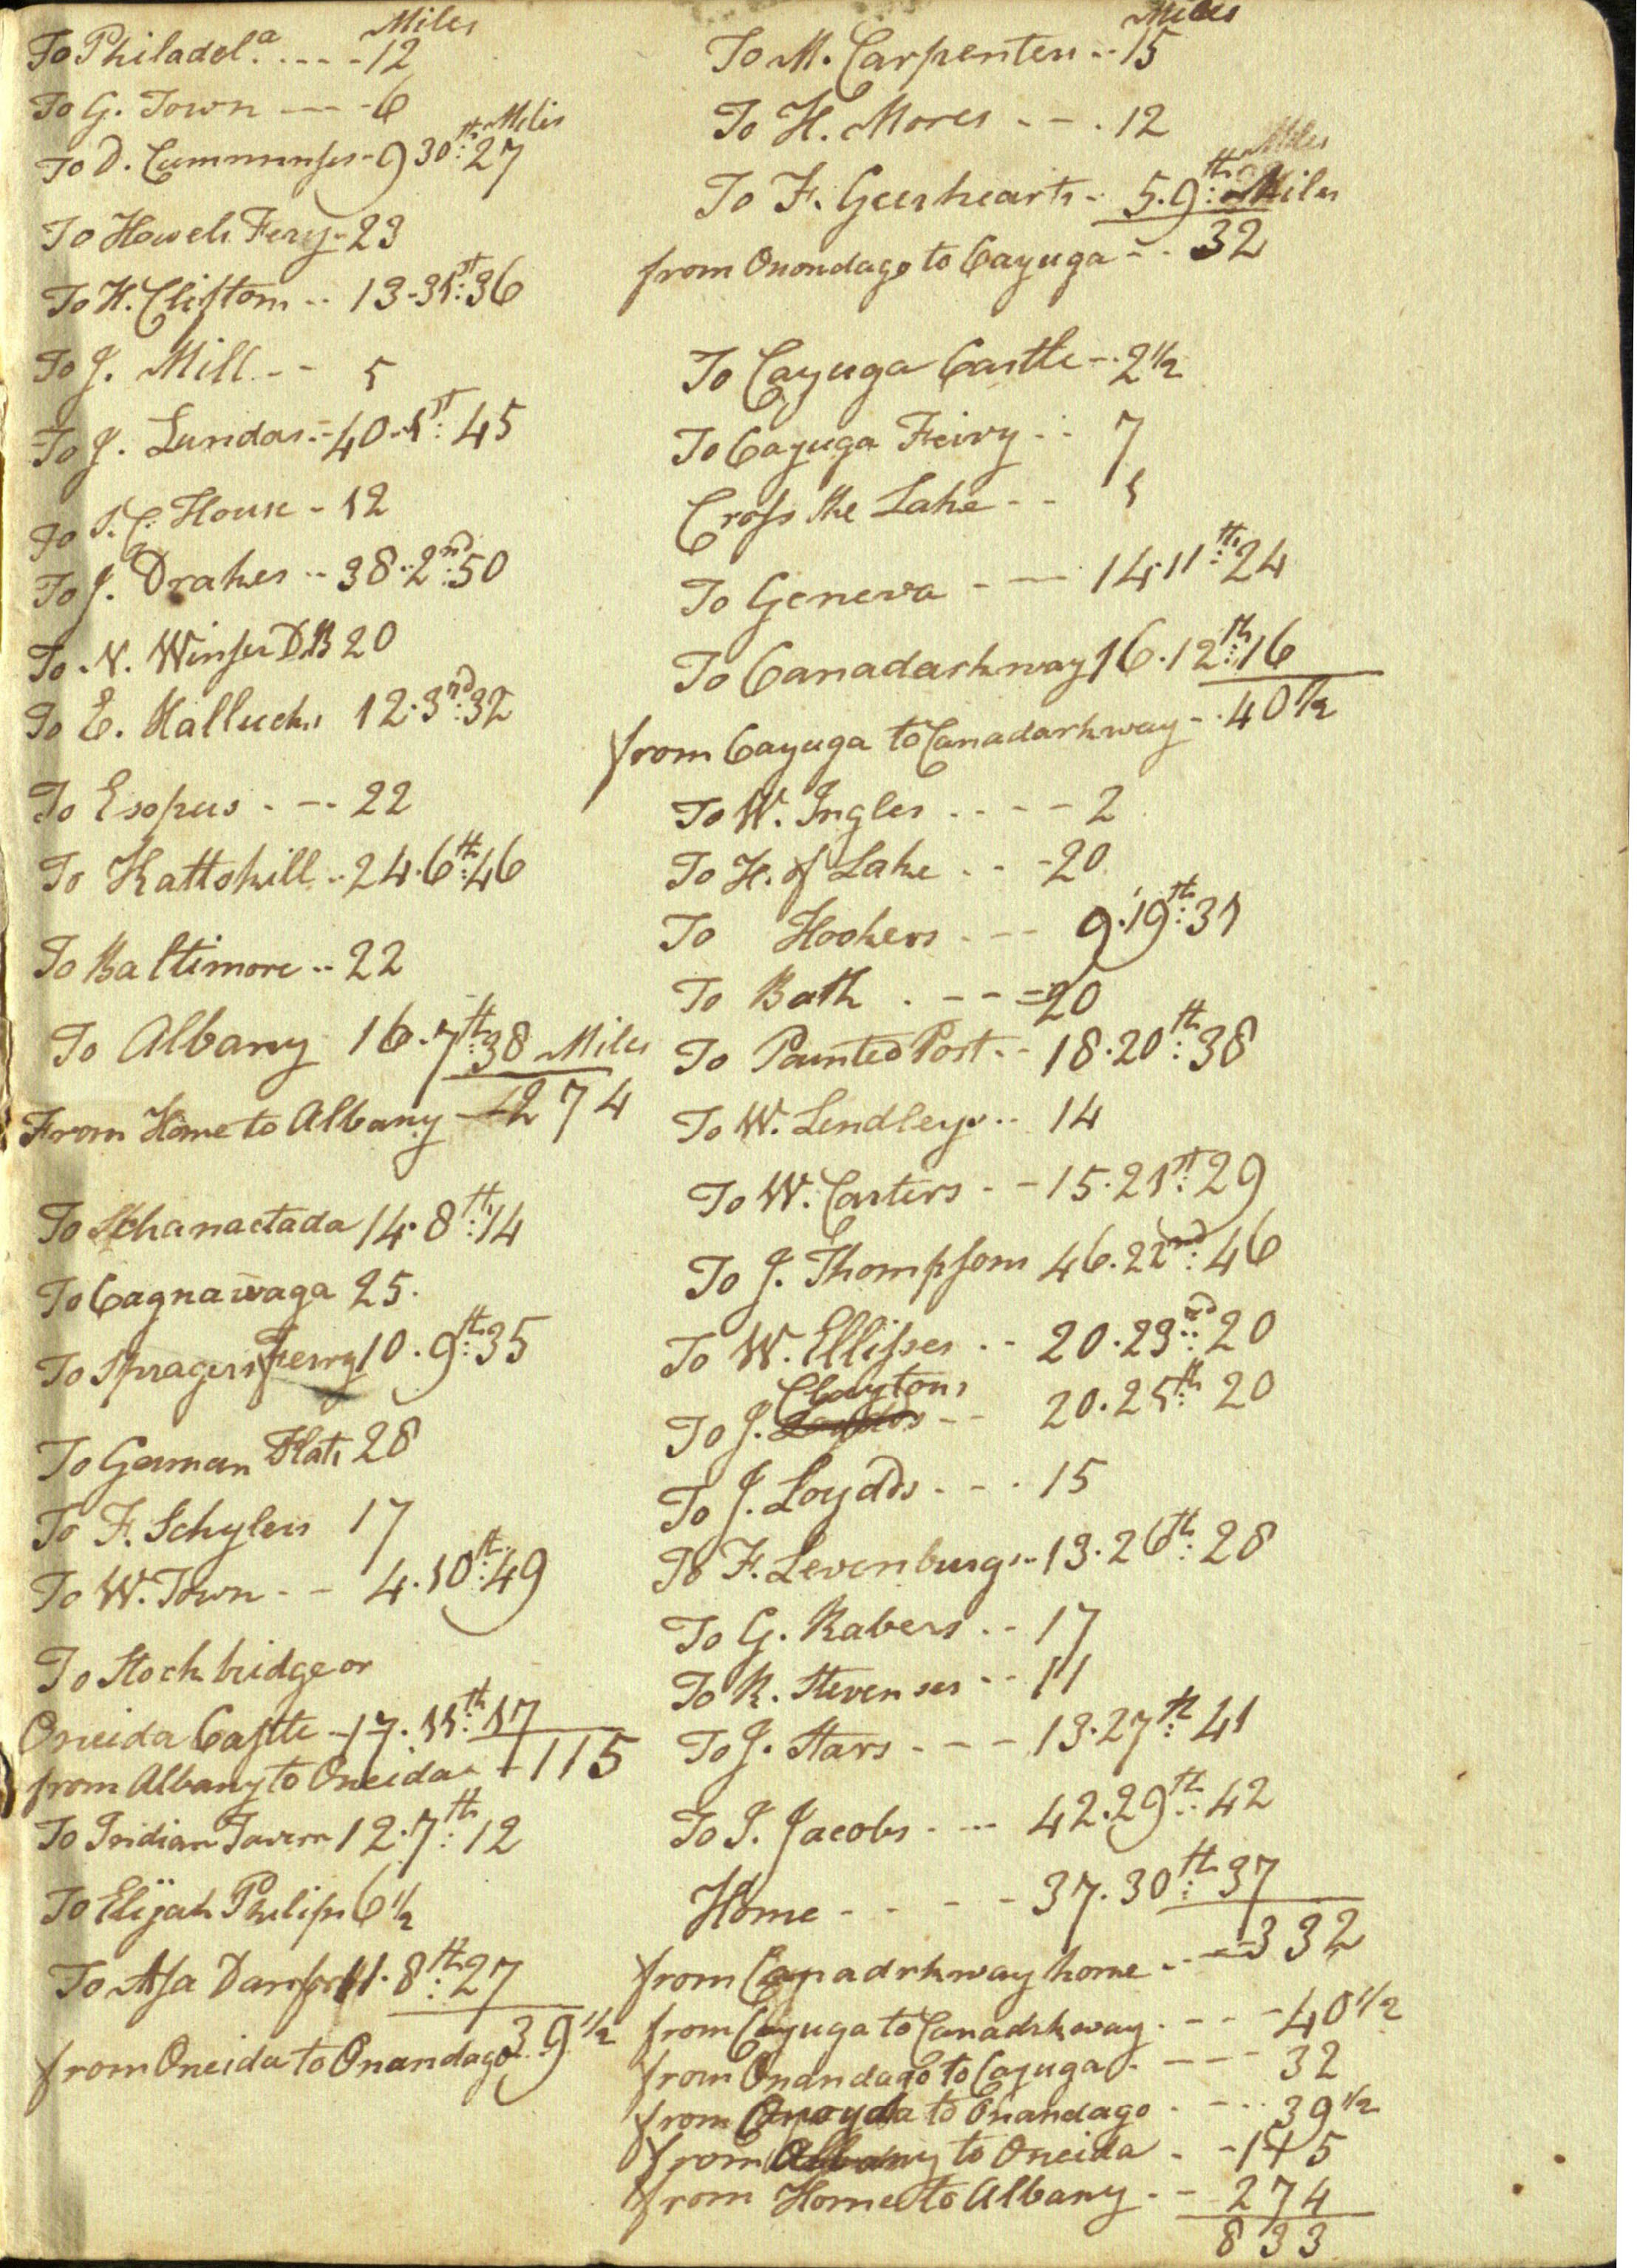 Miles
To Philadel.a .... 12
To G. Town --- 6
Miles
To D. Cummings - 9 30th: 27
To Howels Fery - 23
To H. Cliftons .. 13. 31st: 36
To J. Mill -- 5
To J. Lundas .- 40. 1st: 45
To House - 12
To J. Drakes .. 38. 2nd: 50
To N. Winser 20
To E. Hallucks 12. 3rd: 32
To Esopus . -- 22
To Kattskill .. 24. 6th: 46
To Baltimore .. 22
To Albany 16. 7th: 38 Miles
From Home to Albany - 274
To Schanactada 14. 8th: 14
To Cagnawaga 25.
To Spragers Ferry 10. 9th: 35
To German Flats 28
To F. Schylers 17
To W. Town - - 4. 10th: 49
To Stockbridge or
Oneida Castle - 17. 11th: 17
from Albany to Oneida - 115
To Indian Tavern 12. 7th: 12
To Elijah Philips 6 1/2
To Asa Danfor 11. 8th: 27
39 1/2
from Oneida to Onandago
Miles
To M. Carpenters .. 15
To H. Mores - - . 12
Miles
To F. Geerhearts . 5. 9th: Miles
from Onondago to Cayuga - . 32
To Cayuga Castle - . 2 1/2
To Cayuga Ferry . . 7
Cross the Lake - - 1
To Geneva - -- 14. 11th: 24
To Canadarkway 16. 12th: 16
from Cayuga to Canadarkway - . 40 1/2
To W. Ingles . . - - 2
To H. of Lake . . - 20
To Hookers . - - 9. 19th: 31
To Bath . - - = 20
To Painted Post . - 18. 20th: 38
To W. Lendleys .. 14
To W. Carters . - 15. 21st: 29
To J. Thompsons 46. 22nd: 46
To W. Ellises . - 20. 23rd: 20
Claytons
To J. -- 20. 25th: 20
To J. Loydds . - . 15
To F. Levenburgs .. 13. 26th: 28
To G. Rabers . - 17
To R. Stevenses . - 11
To J. Stars . - - - 13. 27th: 41
To J. Jacobs . -- 42. 29th: 42
Home - . - - 37. 30th: 37
from Canadrkway home . . - 332
from Cayuga to Canadrkway . - - - 40 1/2
from Onandago to Cayuga . - - - 32
from Onoyda to Onandago . - . . 39 1/2
from Albany to Oneida . - 115
from Home to Albany . - 274
833